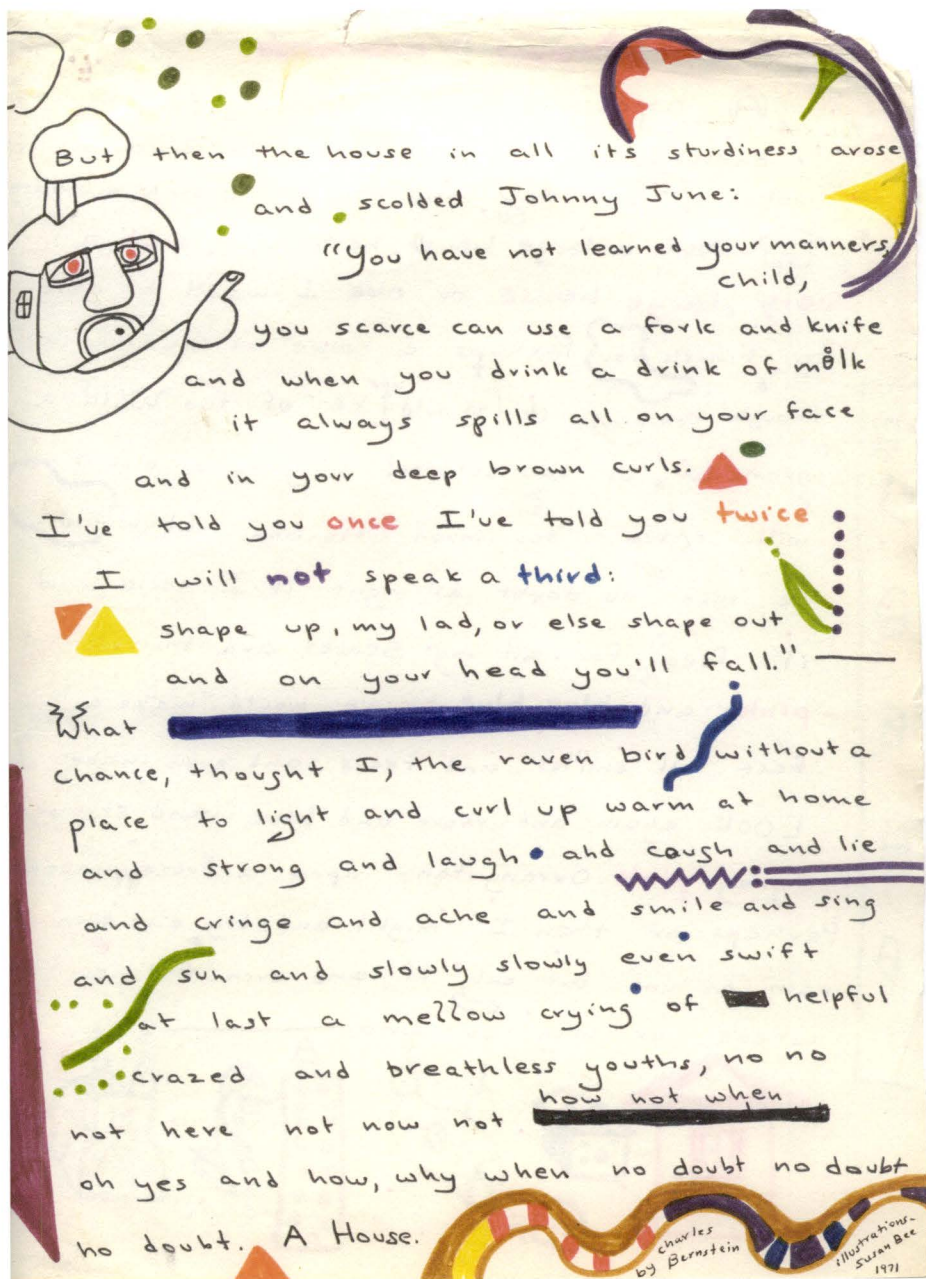 But then the house in all its sturdiness arose
and scolded Johnny June:
"You have not learned your manners,
child,
you scarce can use a fork and knife
and when you drink a drink of milk
it always spills all on your face
and in your deep brown curls.
I've told you once I've told you twice
I will not speak a third:
shape up, my lad, or else shape out
and on your head you'll fall."
What
chance, thought I, the raven bird without a
place to light and curl up warm at home
and strong and laugh and cough and lie
and cringe and ache and smile and sing
and sun and slowly slowly even swift
at last a mellow crying of helpful
crazed and breathless youths, no no
not here not now not how not when
oh yes and how, why when no doubt no doubt
no doubt. A House.
charles
by Bernstein
illustrations-
Susan Bee
1971